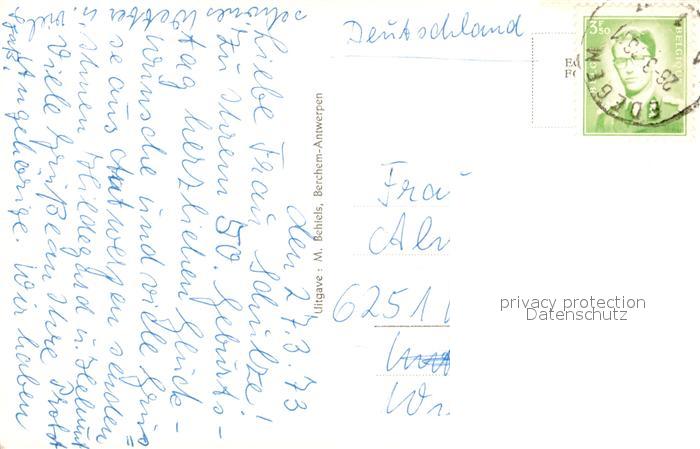 den 27.3.73
Liebe Frau Schulze!
Zu Ihrem 50. Geburts-
tag herzlichen Glück-
wünsche und viele Grüs=
se aus Antwerpen senden
Ihnen Hildegard u. Helmut
Viele Grüße an Ihre
Angehörige. Wir haben
schönes Wetter u. viel
Spaß!
Uitgave : M. Behiels, Berchem-Antwerpen
Deutschland
3F50
BELGIE
EDEGEM
Frau
6251
privacy protection
Datenschutz